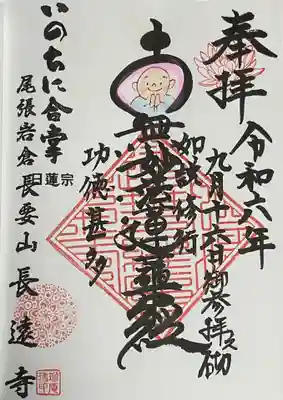 奉拝
令和六年
九月十六日御参拝之砌
南無妙法蓮華経
如説修行
功徳甚多
いのちに合掌
尾張岩倉 日蓮宗 長要山 長遠寺